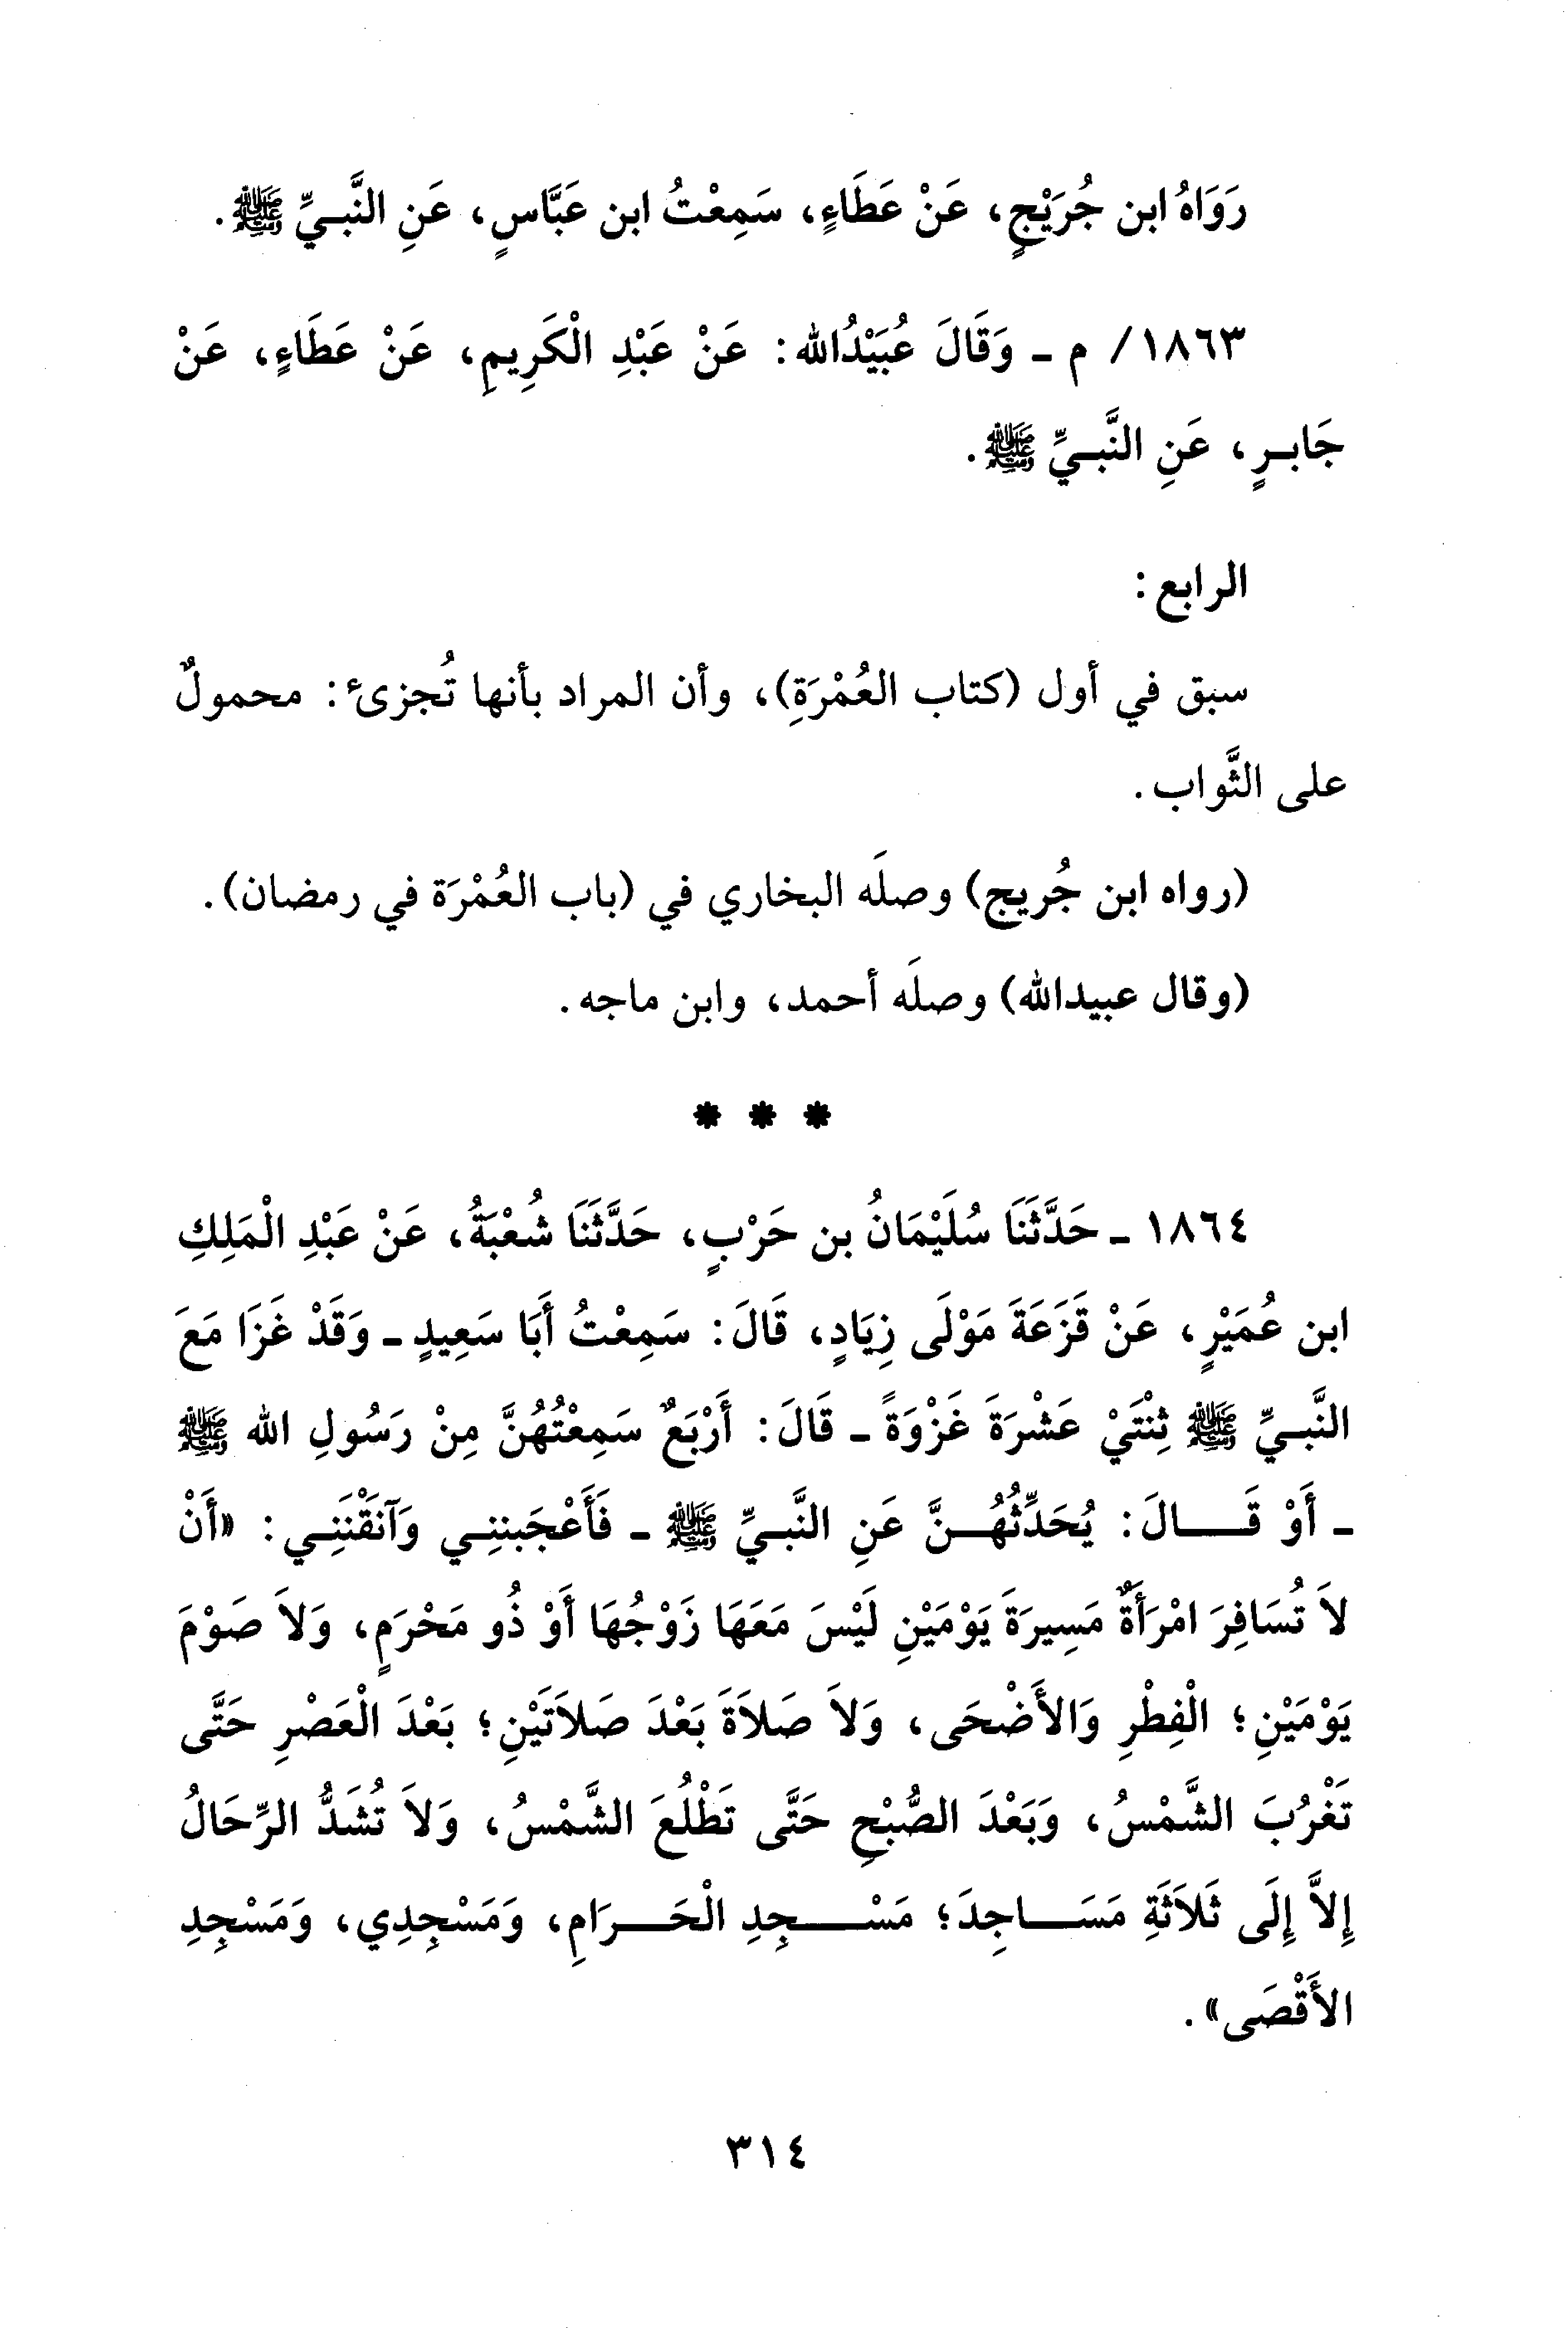 رَوَاهُ ابن جُرَيْجٍ، عَنْ عَطَاءٍ، سَمِعْتُ ابن عَبَّاسٍ، عَنِ النَّبِيِّ ﷺ.
١٨٦٣/ م - وَقَالَ عُبَيْدُالله: عَنْ عَبْدِ الْكَرِيمِ، عَنْ عَطَاءٍ، عَنْ
جَابِرٍ، عَنِ النَّبِيِّ ﷺ.
الرابع:
سبق في أول (كتاب العُمْرَةِ)، وأن المراد بأنها تُجزئ: محمولٌ
على الثَّواب.
(رواه ابن جُريج) وصلَه البخاري في (باب العُمْرَة في رمضان).
(وقال عبيدالله) وصلَه أحمد، وابن ماجه.
* * *
١٨٦٤ - حَدَّثَنَا سُلَيْمَانُ بن حَرْبٍ، حَدَّثَنَا شُعْبَةُ، عَنْ عَبْدِ الْمَلِكِ
ابن عُمَيْرٍ، عَنْ قَزَعَةَ مَوْلَى زِيَادٍ، قَالَ: سَمِعْتُ أَبَا سَعِيدٍ - وَقَدْ غَزَا مَعَ
النَّبِيِّ ﷺ ثِنْتَيْ عَشْرَةَ غَزْوَةً - قَالَ: أَرْبَعٌ سَمِعْتُهُنَّ مِنْ رَسُولِ الله ﷺ
- أَوْ قَالَ: يُحَدِّثُهُنَّ عَنِ النَّبِيِّ ﷺ - فَأَعْجَبنَنِي وَآنَقْنَنِي: «أَنْ
لاَ تُسَافِرَ امْرَأَةٌ مَسِيرَةَ يَوْمَيْنِ لَيْسَ مَعَهَا زَوْجُهَا أَوْ ذُو مَحْرَمٍ، وَلاَ صَوْمَ
يَوْمَيْنِ؛ الْفِطْرِ وَالأَضْحَى، وَلاَ صَلاَةَ بَعْدَ صَلاَتَيْنِ؛ بَعْدَ الْعَصْرِ حَتَّى
تَغْرُبَ الشَّمْسُ، وَبَعْدَ الصُّبْحِ حَتَّى تَطْلُعَ الشَّمْسُ، وَلاَ تُشَدُّ الرِّحَالُ
إِلاَّ إِلَى ثَلاَثَةِ مَسَاجِدَ؛ مَسْجِدِ الْحَرَامِ، وَمَسْجِدِي، وَمَسْجِدِ
الأَقْصَى».
٣١٤